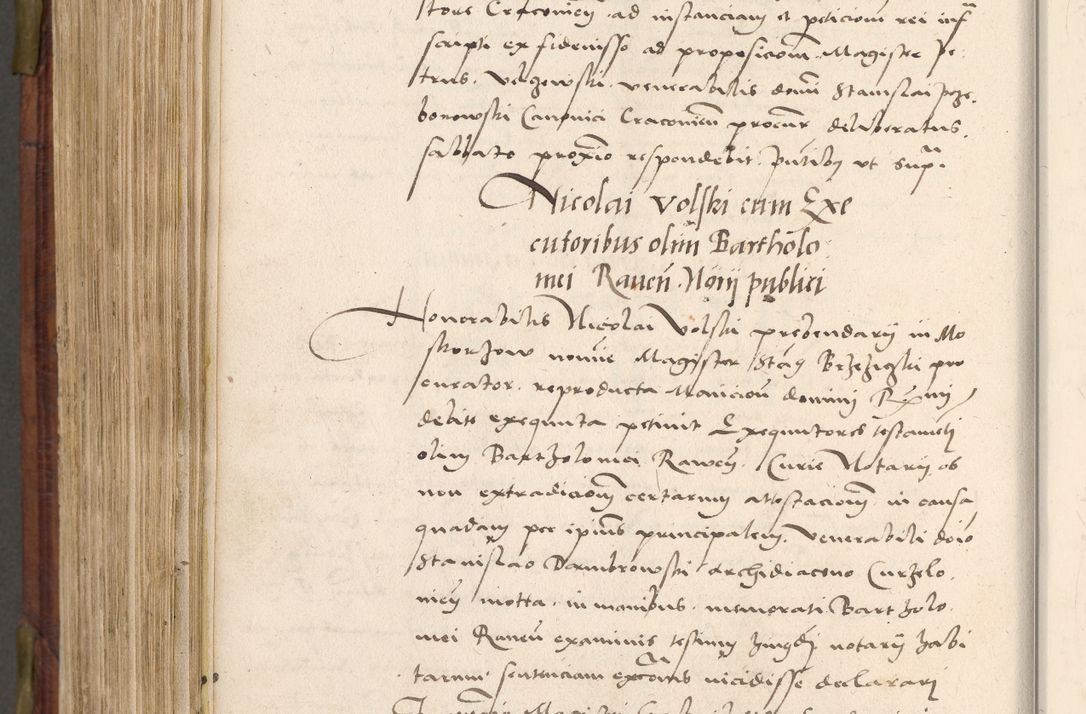 store Craconien ad instanciam et peticionem rei inf
scripti ex fidenisso ad proposicionem Magistr Pe
trus Velgowski venerabilis domini Stanislai Prze
borowski Canonici Craconien procur deliberatus
sabbato proximo respondebit Putibus ut supra
Nicolai Volski cum Exe
cutoribus olim Bartholo
mei Raven Norij publici
Honorabilis Nicolai Volski prebendarij in Mo
skorzow nomine Magister Stan Brzeziczki pro
curator reproducta Monicion domini
debite exequuta petiuit Exequutores testamenti
olim Bartholomei Rawen Curie Notarij ob
non extradicionem certarum attestacionum in causa
quadam per ipsius principalem Venerabili domino
Stanislao Dambrowski Archidiacono Curzelo
nien motta in manibus memorati Bartholo
mei Raven examinis testium notarij habi
tarum sententiam excommunicationis incidisse declarari